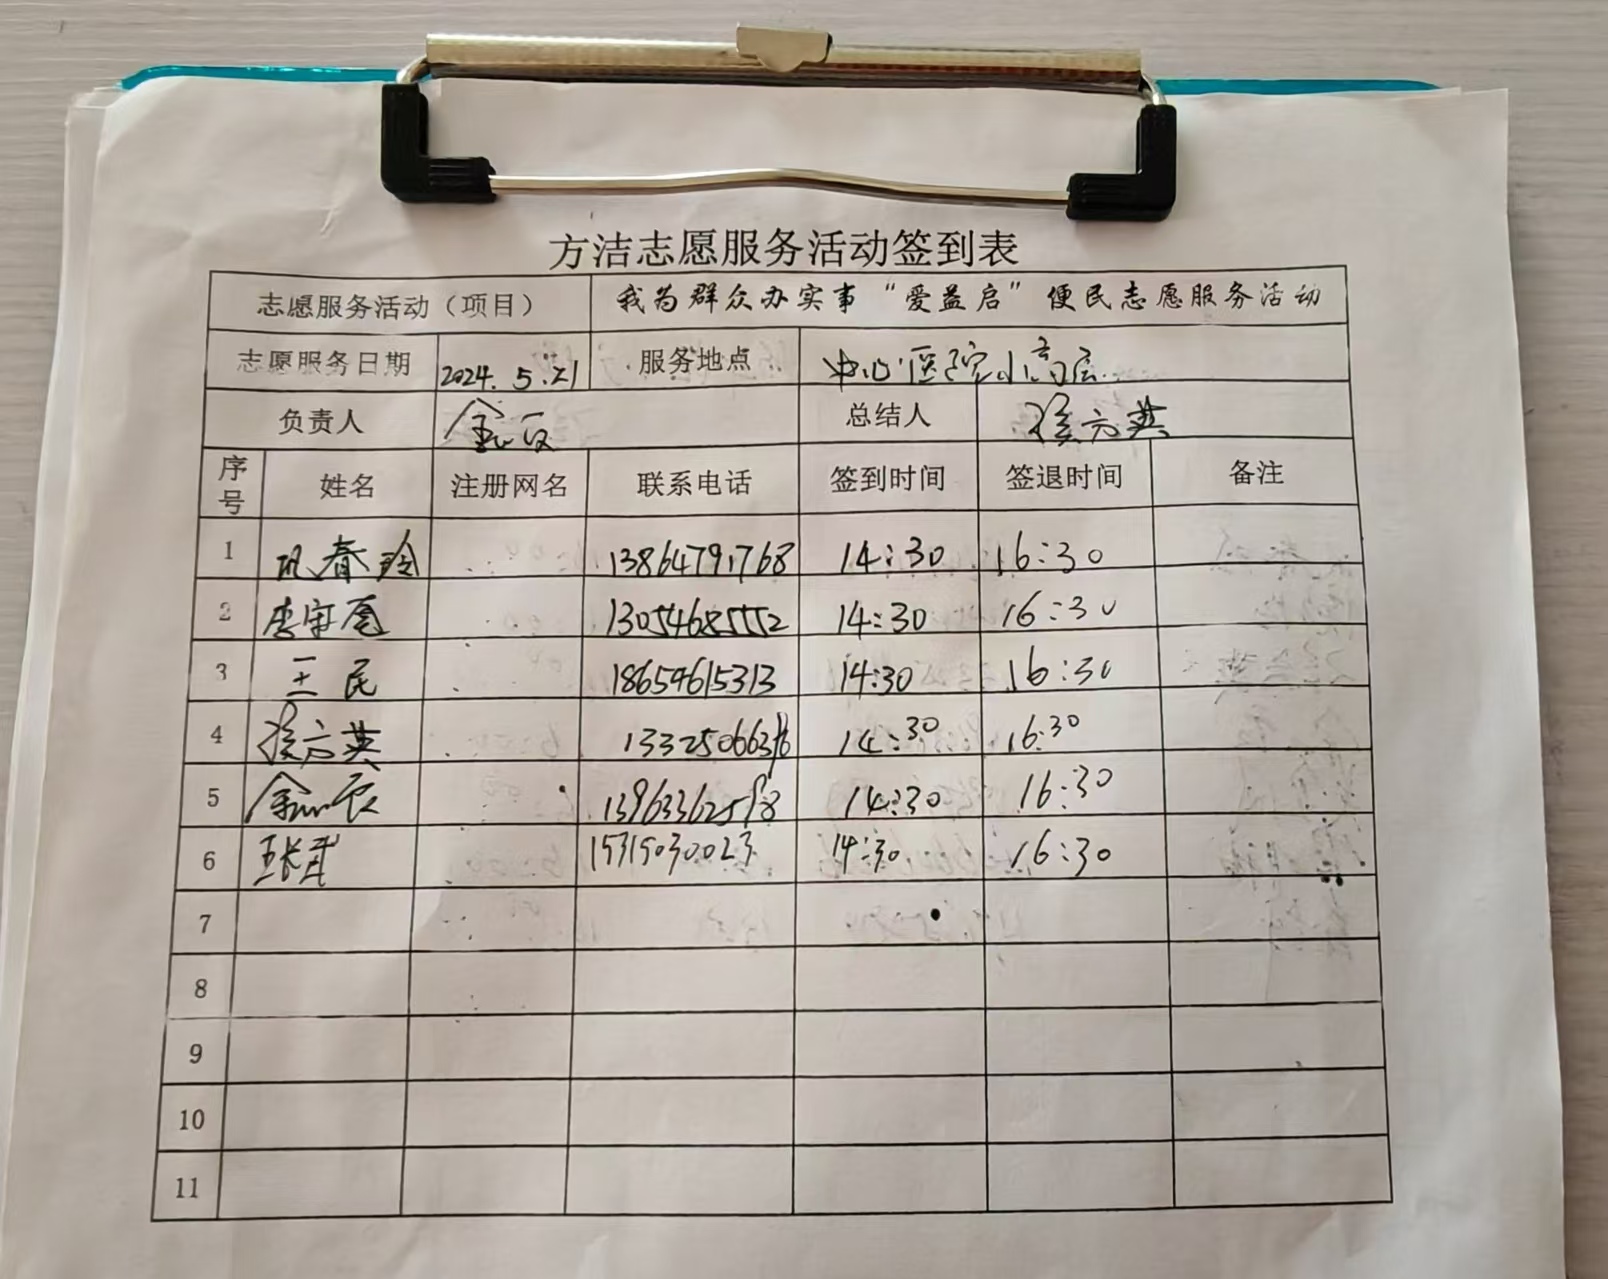 方洁志愿服务活动签到表
志愿服务活动（项目） 我为群众办实事“爱益启”便民志愿服务活动
志愿服务日期 2024.5.21 服务地点 中心医院小高层
负责人 总结人 方英
序号 姓名 注册网名 联系电话 签到时间 签退时间 备注
1 巩春玲 13864791768 14:30 16:30
2 李宗 13054685552 14:30 16:30
3 王民 18659615313 14:30 16:30
4 方英 14:30 16:30
5 13963362598 14:30 16:30
6 15315030023 14:30 16:30
7
8
9
10
11